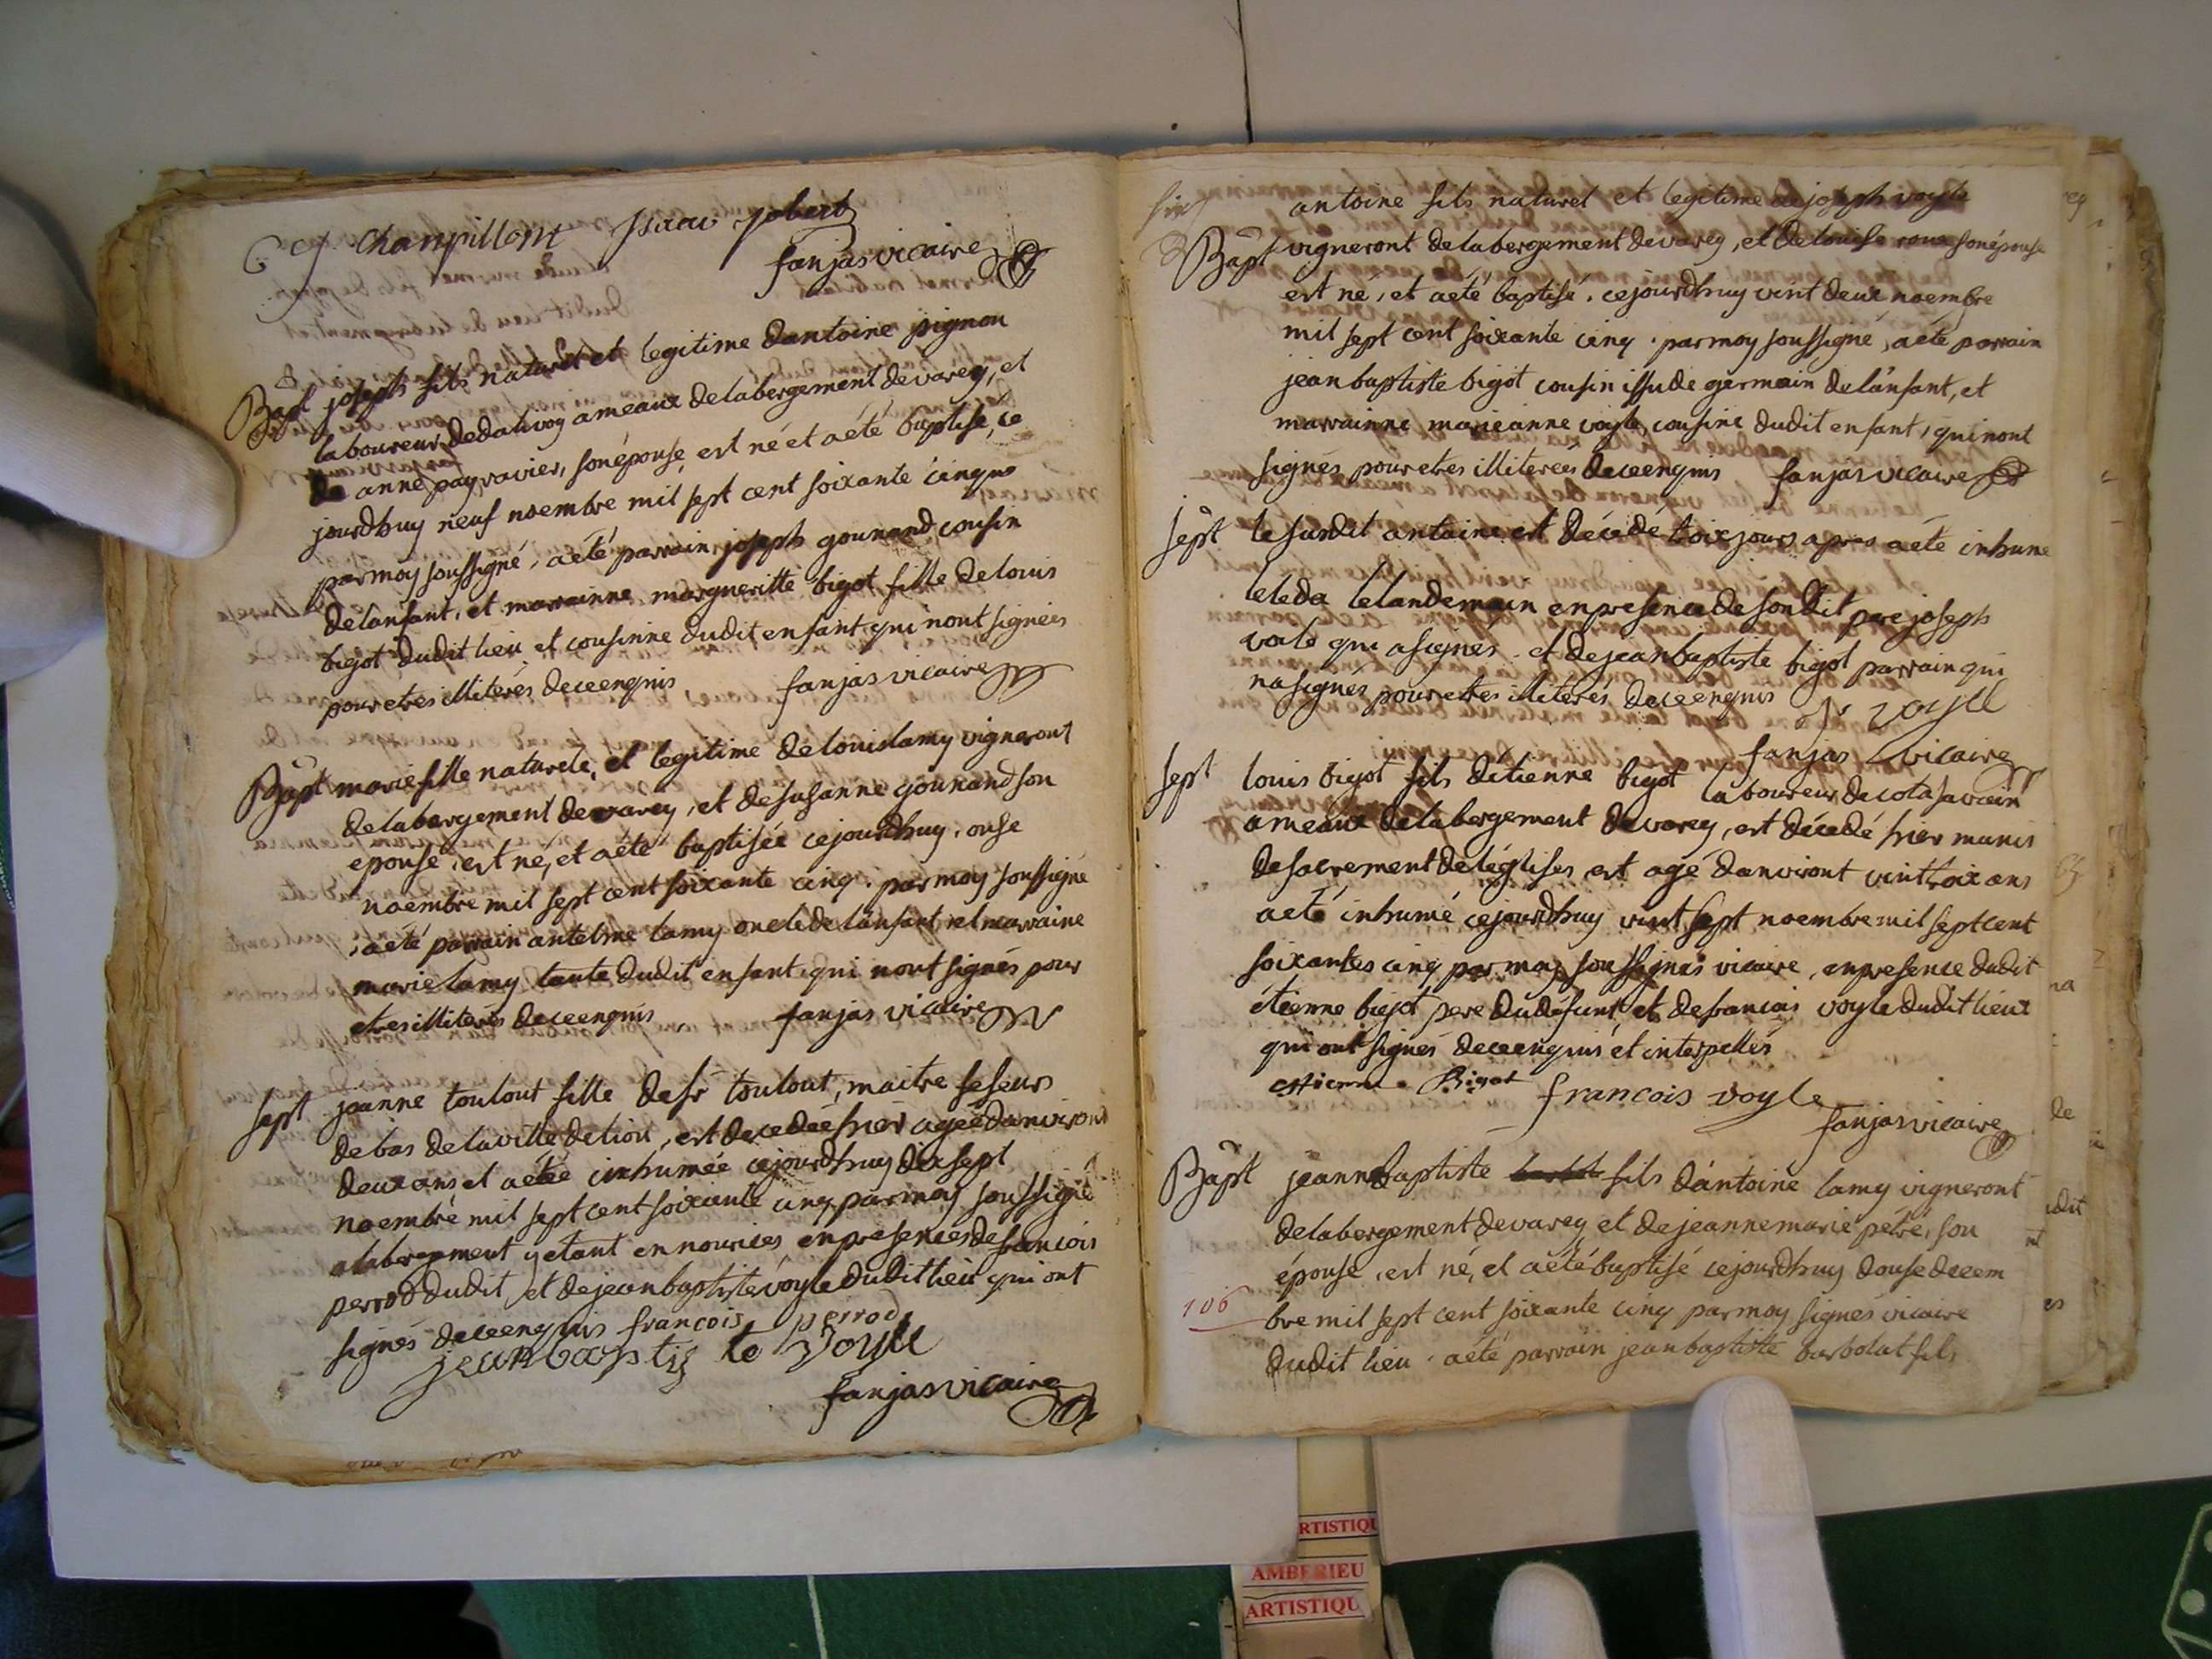 C J Champillont Isaac jobert
fanjas vicaire
Bapt joseph fils naturel et legitime dantoine pignon
laboureur dedalivoy ameaux delabergement devarey, et
de anne pay ravier, sonépouse, est né et aété baptisé, ce
jourdhuy neuf noembre mil sept cent soixante cinque
parmoy soussigné, aété parrain joseph gounand cousin
delanfant, et marrainne margueritte bigot fille delouis
bigot dudit lieu et cousinne dudit enfant qui nont signées
pouretres illiterés deceenquis fanjas vicaire
Bapt marie fille naturele, et legitime delouislamy vigneront
delabergement devarey, et desusanne gounand son
epouse, est né, et aété baptisée cejourdhuy, onse
noembre mil sept cent soixante cinq. parmoy soussigné
, aété parrain antelme lamy oncledelanfant et marraine
marie lamy tante dudit enfant qui nont signés pour
etres illiterés deceenquis fanjas vicaire
sept joanne toulout fille desr toulout, maitre feseurs
debas delaville delion, est decedée hier ageé danviront
deux ans et aétée inhumée cejourdhuy dixsept
noembre mil sept cent soixante cinq parmoy soussigné
alabergement yetant ennourices enpresences de francois
perrod dudit, et dejeanbaptiste voyle dudit lieu qui ont
signés deceenquis francois perrod
jeanbaptiste voyle
fanjas vicaire
antoine fils naturel et legitime dejoseph voyle
Bapt vigneront delabergement devarey, et delouise roux sonépouse
est né, et aété baptisé. cejourdhuy vint deux noembre
mil sept cent soixante cinq. parmoy soussigné, aété parrain
jeanbaptiste bigot cousin issude germain delanfant, et
marrainne marieanne voyle, cousine dudit enfant, quinont
signés pouretres illiterées deceenquis fanjas vicaire
sept lesusdit antoine est décédé troix jours apres aété inhume
lelandemain enpresence desondit pere joseph
voile qui asignés. et dejeanbaptiste bigot parrain qui
nasignés pouretres illiterés deceenquis
voyle
fanjas vicaire
sept louis bigot fils détienne bigot laboureur decotasavain
ameaux delabergement devarey, est décedé hier munis
desacrement deléglises, est agé danviront vint troix ans
aété inhumé cejourdhuy vint sept noembre mil sept cent
soixantes cinq parmoy soussignés vicaire, enpresence dudit
étienne bigot pere dudéfunt, et defrancois voyle dudit lieux
qui ont signés deceenquis et interpellés
estienne Bigot francois voyle
fanjas vicaire
Bapt jeannbaptiste fils dántoine lamy vigneront
delabergement devarey et dejeannemarie petré, son
épouse, est né, et aétébaptisé cejourdhuy douse decem
106 bre mil sept cent soixante cinq parmoy signés vicaire
dudit lieu. aété parrain jeanbaptiste barbolat fils
RTISTIQU
AMBERIEU
ARTISTIQU